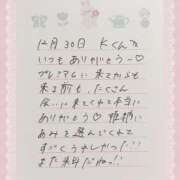 12月30日 Kくんへ
いつもありがとうー♡
プレミアムに来てからも
来る前も、たくさん
会いに来てくれて本当に
ありがとう♡ 姫締に
あみを選んでくれて
すごくうれしかった!!
また来年だねっ!!